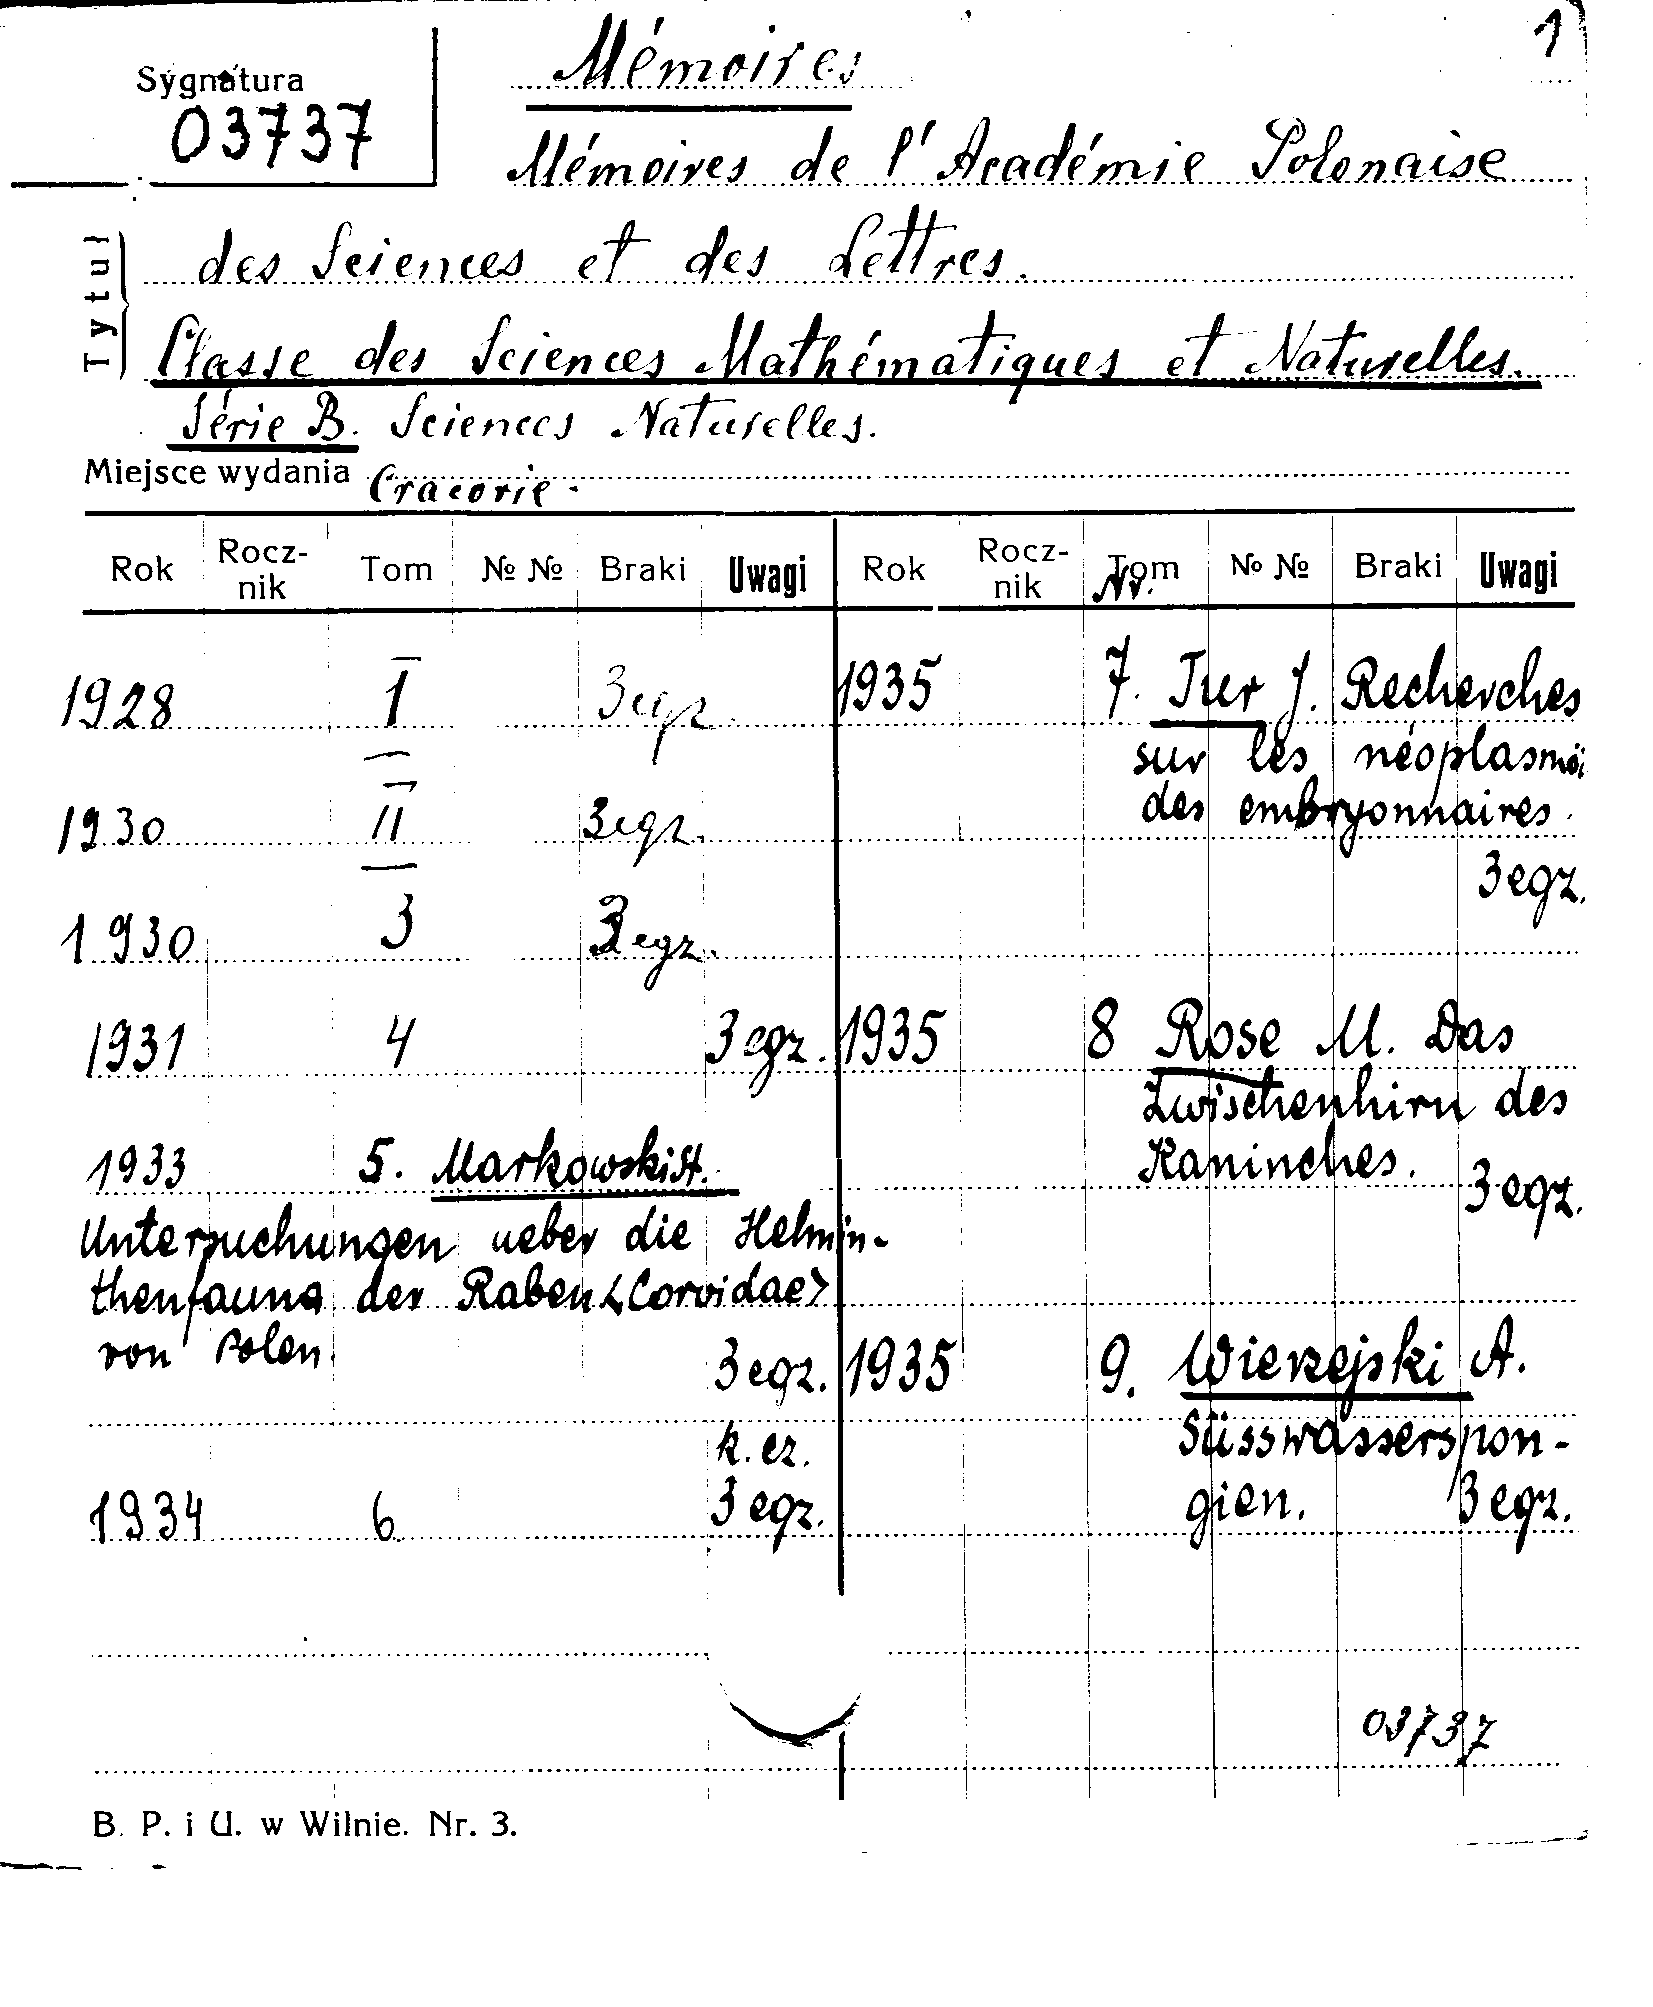 1
Sygnatura
03737
Mémoires
Mémoires de l'Académie Polonaise
Tytuł
des Sciences et des Lettres.
Classe des Sciences Mathématiques et Naturelles.
Série B. Sciences Naturelles.
Miejsce wydania Cracovie.
Rok Rocz-nik Tom № № Braki Uwagi Rok Rocz-nik Tom № № Braki Uwagi
Nr.
1928 I 3egz.
1930 II 3egz.
1930 3 3egz.
1931 4 3egz.
1933 5. Markowski St.
Untersuchungen ueber die Helmin-
thenfauna der Raben <Corvidae>
von Polen.
3egz.
k. cz.
1934 6 3egz.
1935 7. Tur J. Recherches
sur les néoplasmoi
des embryonnaires.
3egz.
1935 8 Rose M. Das
Zwischenhirn des
Kaninches. 3egz.
1935 9. Wierzejski A.
Süsswasserspon-
gien. 3egz.
03737
B. P. i U. w Wilnie. Nr. 3.